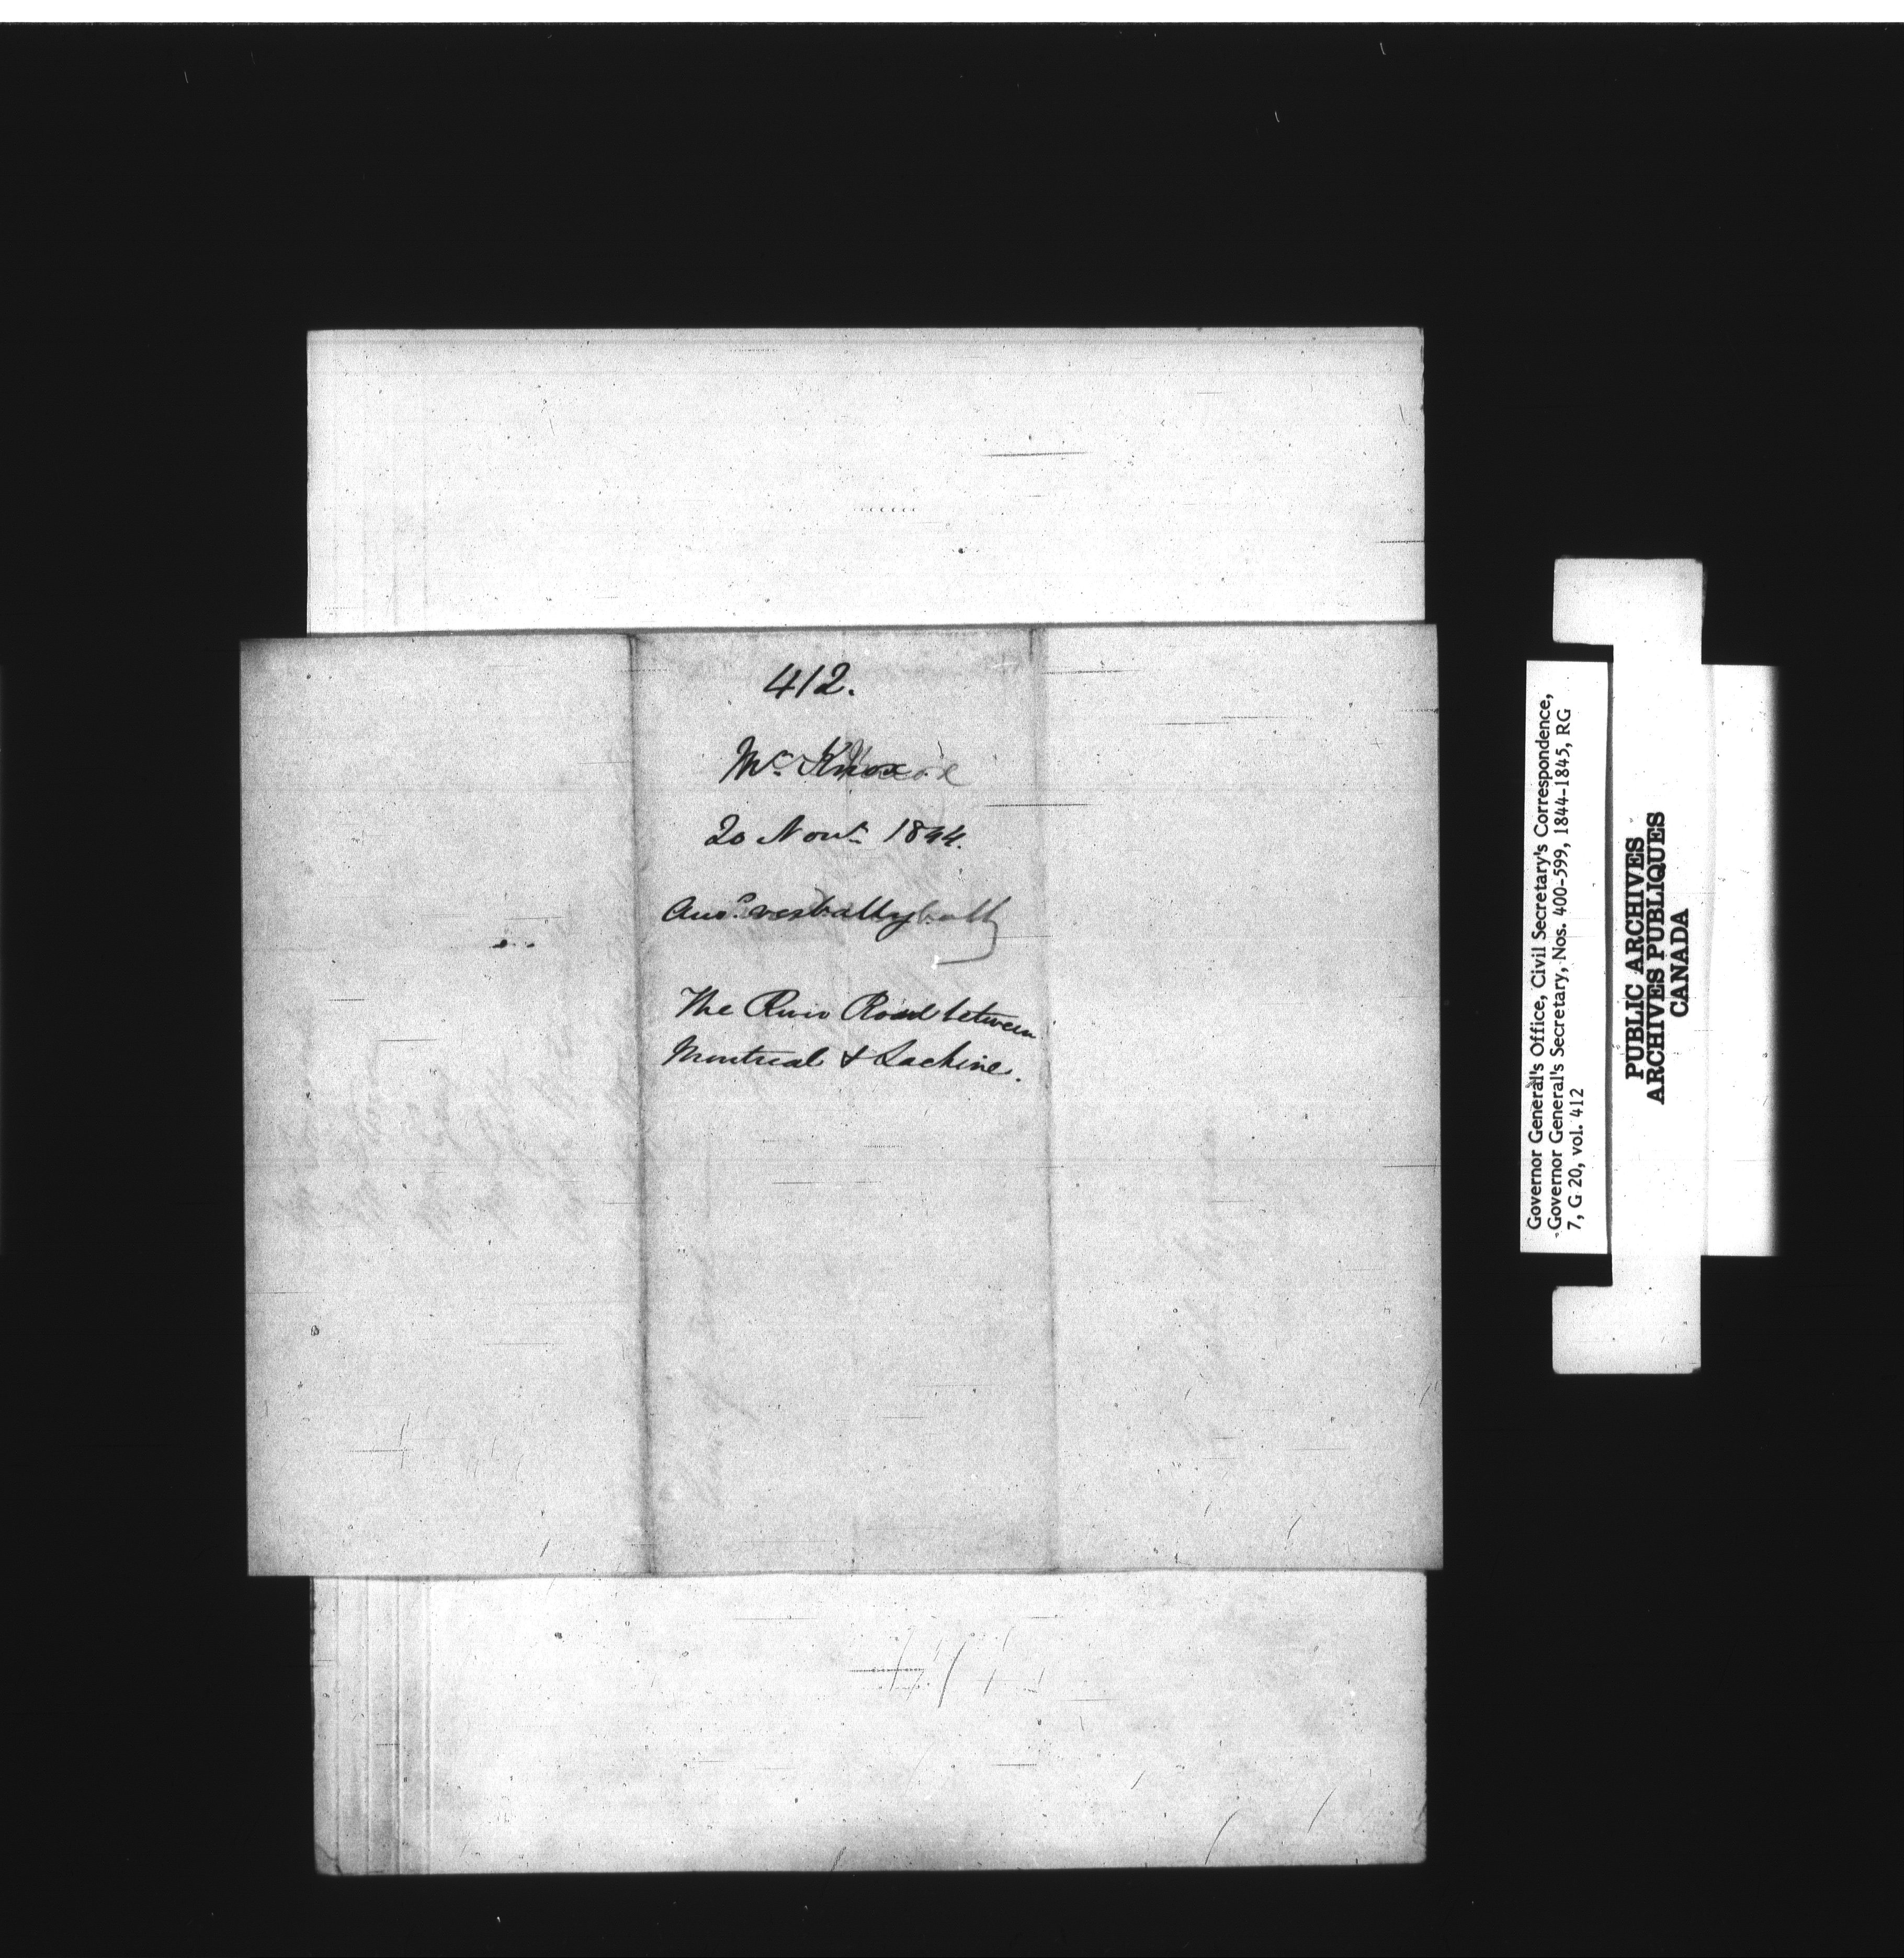 412.
Mr. Knox
20 Novr. 1844.
Ansd. verbally
The River Road between
Montreal & Lachine.
Governor General's Office, Civil Secretary's Correspondence,
Governor General's Secretary, Nos. 400-599, 1844-1845, RG
7, G 20, vol. 412
PUBLIC ARCHIVES
ARCHIVES PUBLIQUES
CANADA